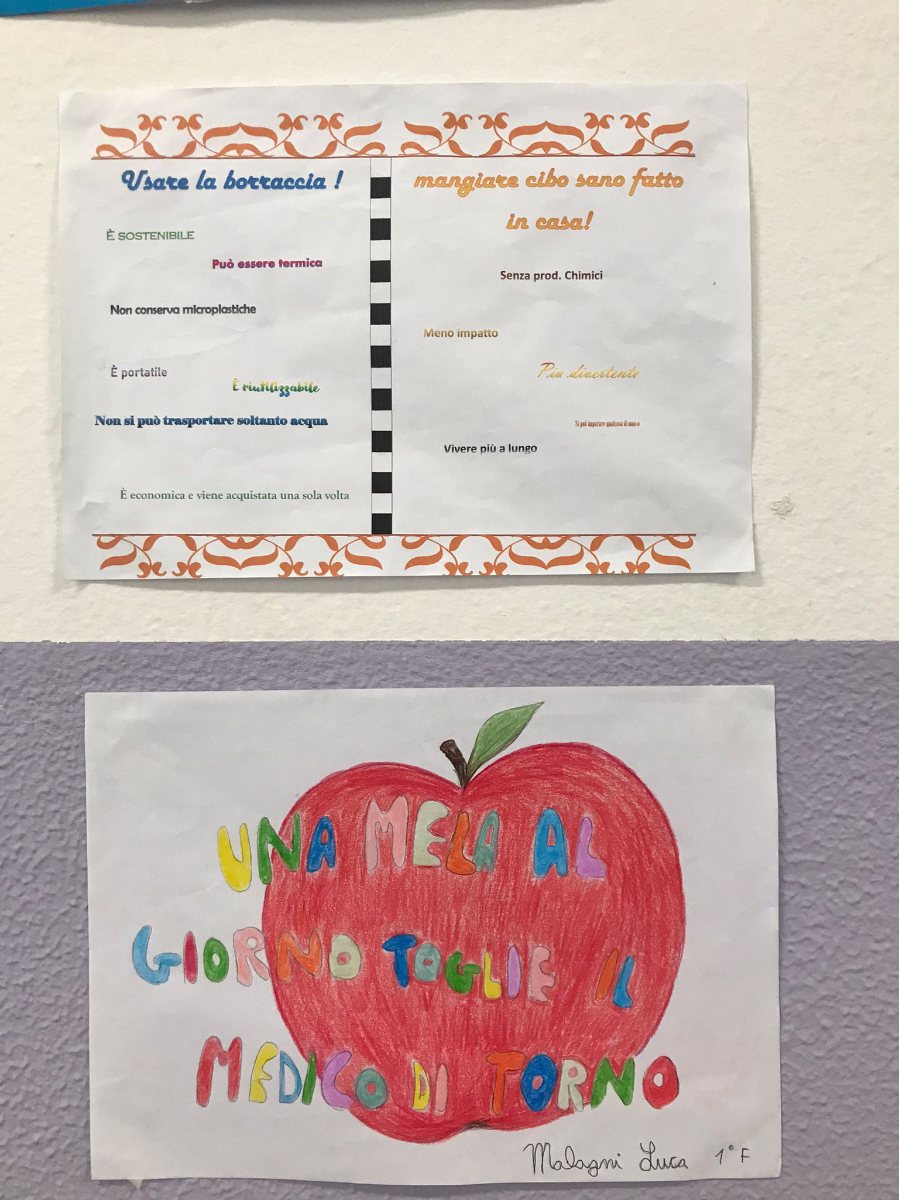 Usare la borraccia !
È SOSTENIBILE
Può essere termica
Non conserva microplastiche
È portatile
È riutilizzabile
Non si può trasportare soltanto acqua
È economica e viene acquistata una sola volta
mangiare cibo sano fatto
in casa!
Senza prod. Chimici
Meno impatto
Piu divertente
Si può imparare qualcosa di nuovo
Vivere più a lungo
UNA MELA AL
GIORNO TOGLIE IL
MEDICO DI TORNO
Malagni Luca 1° F